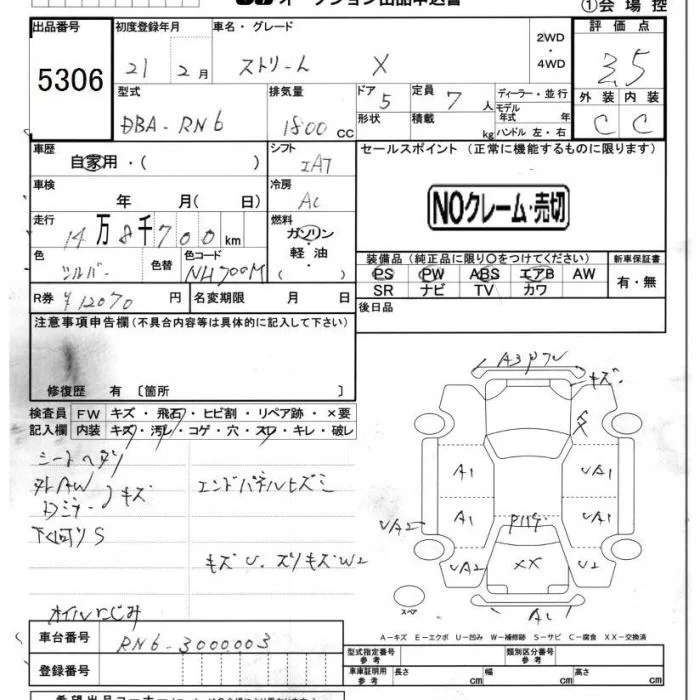 オークション出品申込書
①会場控
出品番号 初度登録年月 車名・グレード 2WD・4WD 評価点
5306 21 2月 ストリーム X 3.5
型式 排気量 ドア 5 定員 7人 ディーラー・並行 外装 内装
DBA-RN6 1800cc 形状 積載 kg モデル年式 年 ハンドル 左・右 C C
車歴 シフト セールスポイント (正常に機能するものに限ります)
自家用・( ) IAT
車検 冷房
年 月( 日) AC NOクレーム・売切
走行 燃料
14万8千700km ガソリン・軽油・( )
色 色替 色コード 装備品(純正品に限り○をつけてください) 新車保証書
シルバー NH700M PS PW ABS エアB AW 有・無
SR ナビ TV カワ
R券 ¥12070円 名変期限 月 日 後日品
注意事項申告欄(不具合内容等は具体的に記入して下さい)
修復歴 有 〔箇所 〕
検査員 FW キズ・飛石・ヒビ割・リペア跡・×要
記入欄 内装 キズ・汚レ・コゲ・穴・スレ・キレ・破レ
シートヘタリ
キズ
エンドパネルヒズミ
下回りS
キズU.スリキズW2
オイルにじみ
キズ
A1 UA1
A1 UA1
UA2
UA2 XX U2
スペア
A1
A-キズ E-エクボ U-凹み W-補修跡 S-サビ C-腐食 XX-交換済
車台番号 RN6-3000003
登録番号
型式指定番号 参考 類別区分番号 参考
車庫証明用 参考 長さ cm 幅 cm 高さ cm